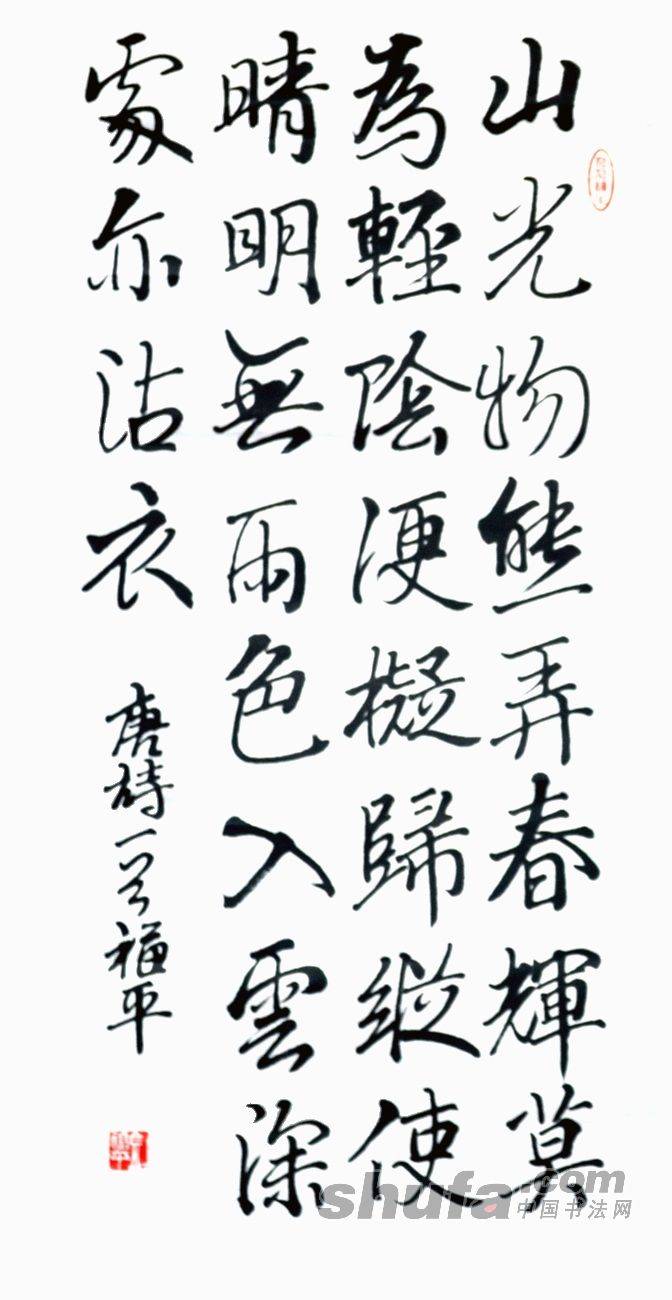 山光物態弄春輝莫
為輕陰便擬歸縱使
晴明無雨色入雲深
處亦沾衣
唐詩一首福平
shufa.com
中国书法网